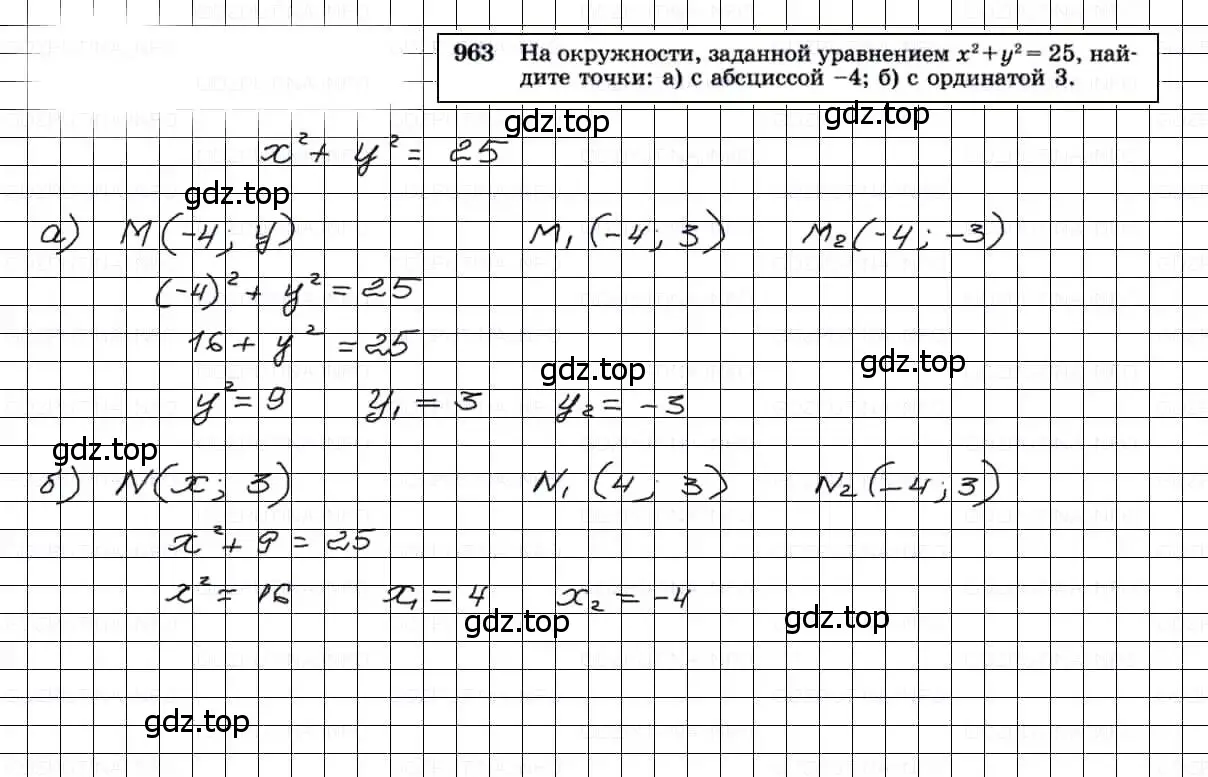 963 На окружности, заданной уравнением x² + y² = 25, най-
дите точки: а) с абсциссой −4; б) с ординатой 3.
gdz.top gdz.top
x² + y² = 25
gdz.top
а) M(-4; y) M₁(-4; 3) M₂(-4; -3)
(-4)² + y² = 25
16 + y² = 25
gdz.top gdz.top
y² = 9 y₁ = 3 y₂ = -3
gdz.top
б) N(x; 3) N₁(4; 3) N₂(-4; 3)
x² + 9 = 25
x² = 16 x₁ = 4 x₂ = -4
gdz.top gdz.top
gdz.top